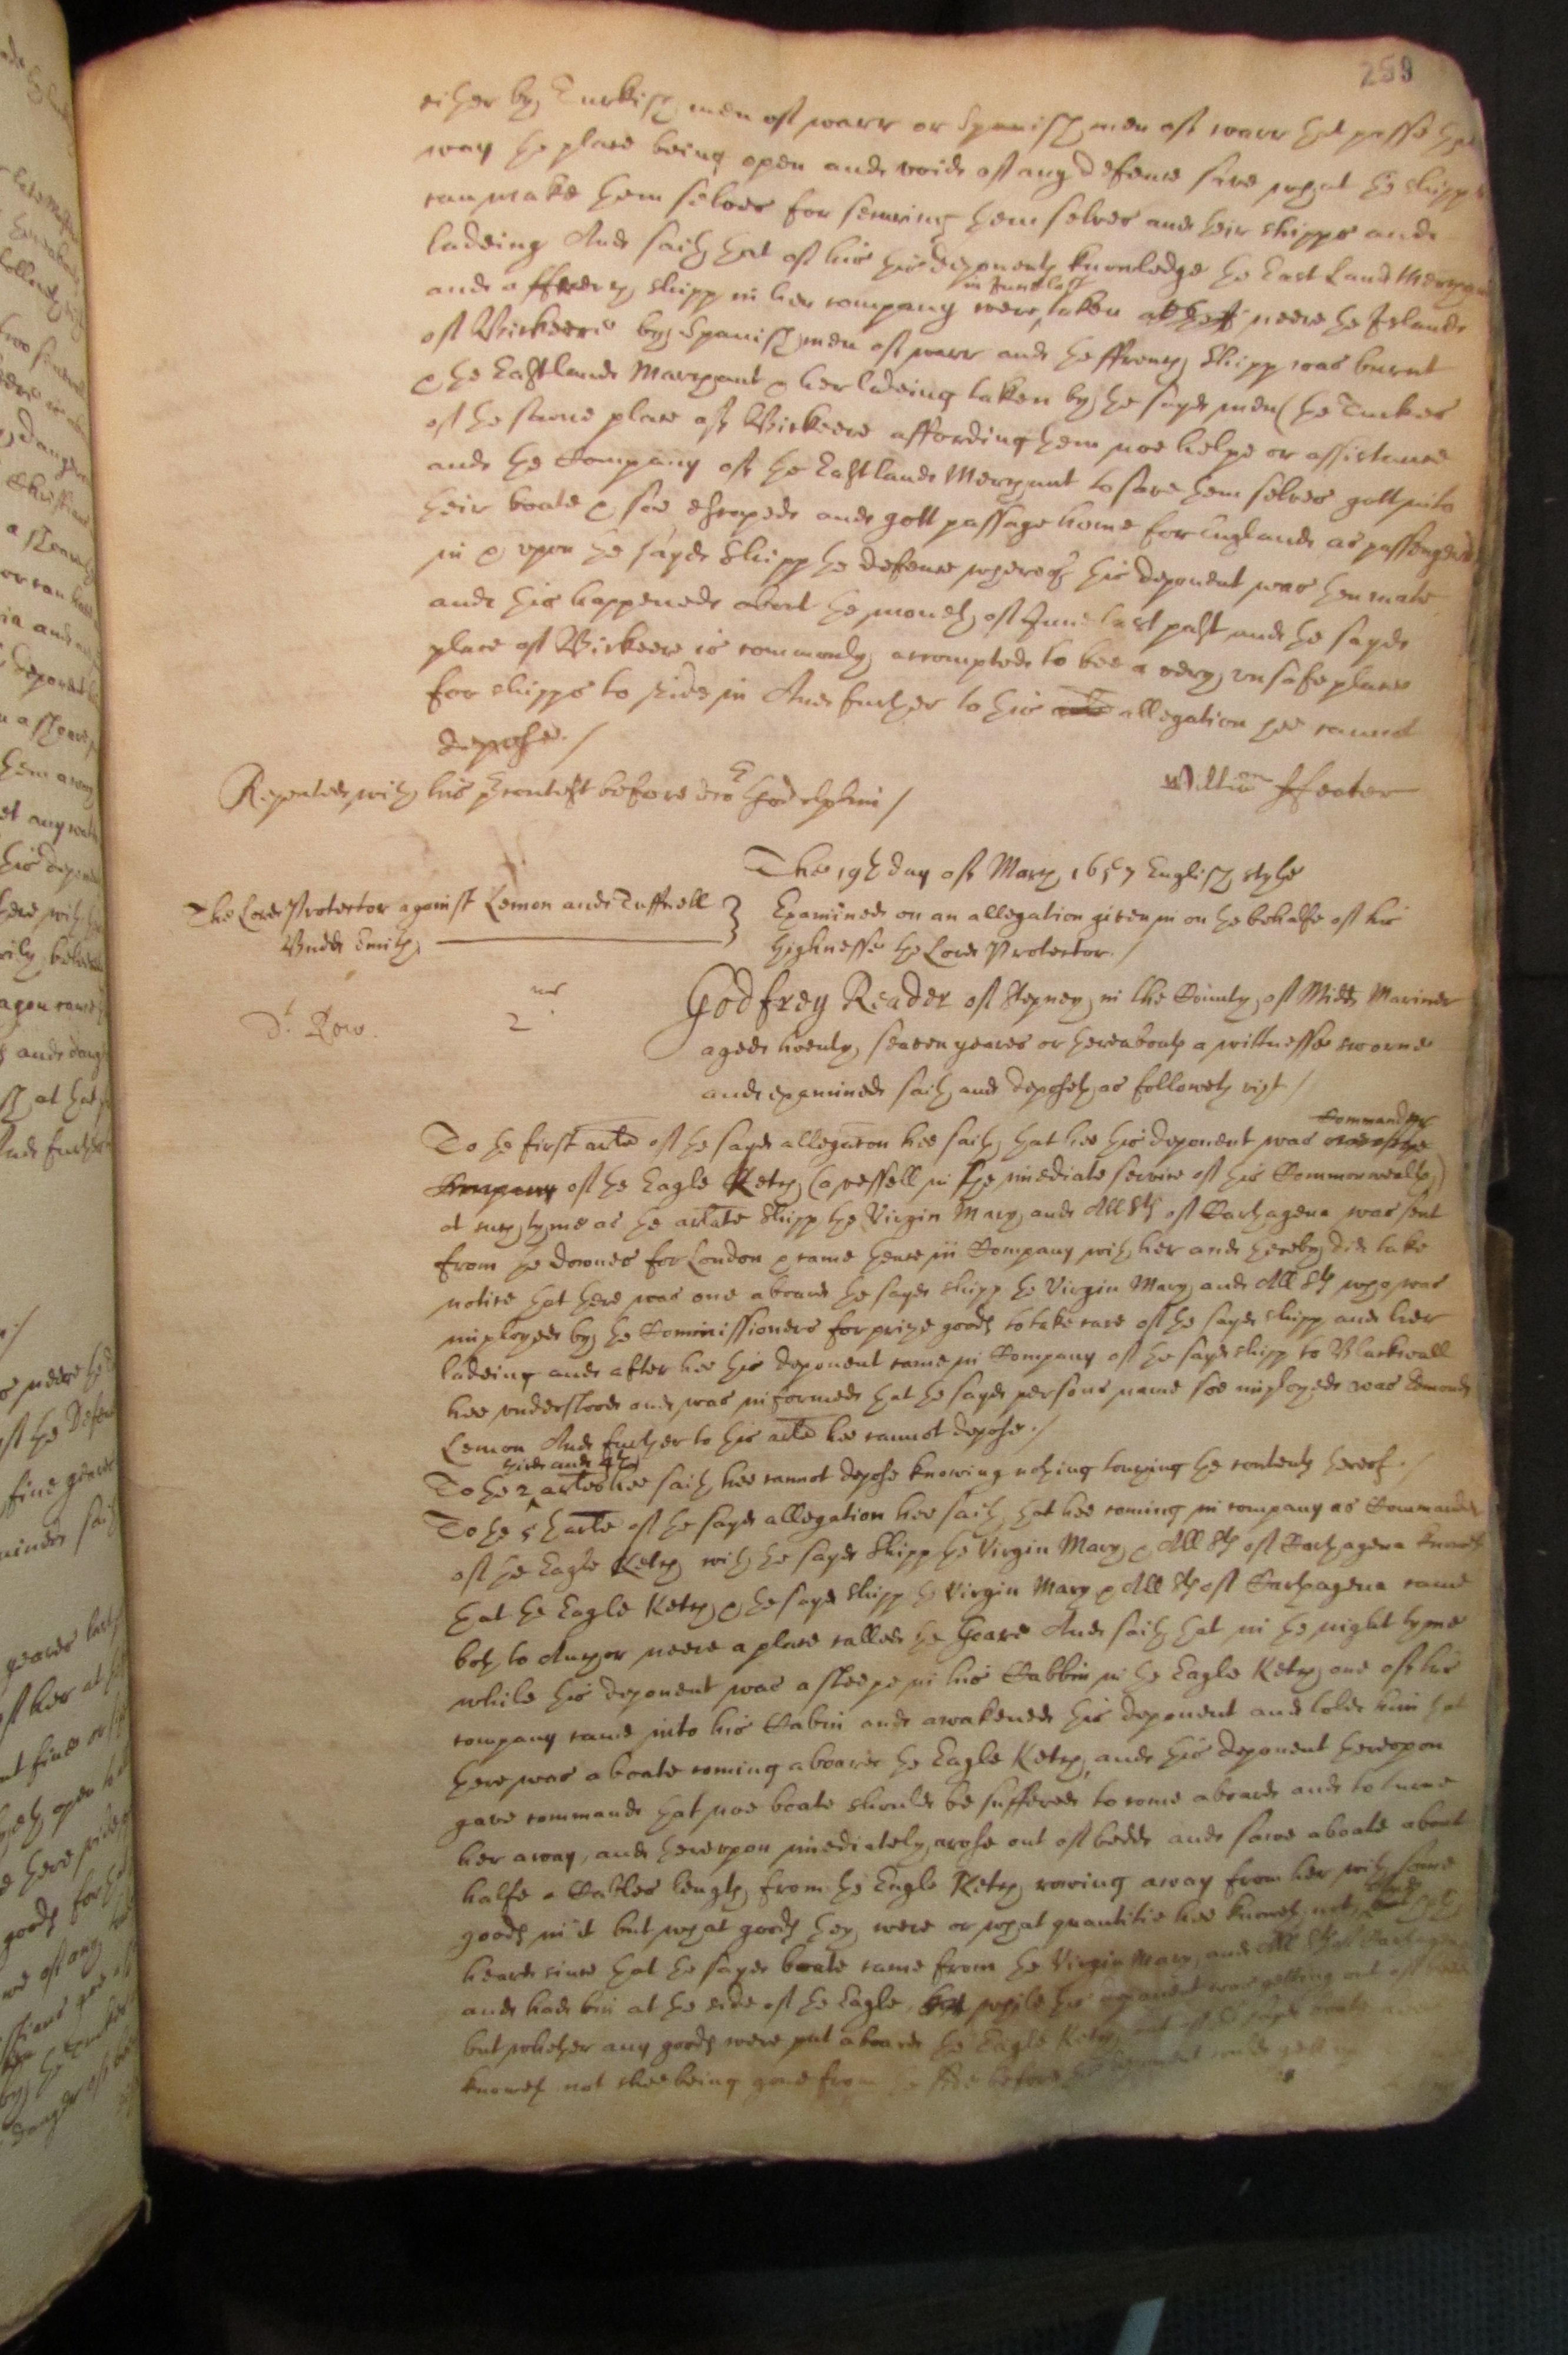 259
either by Turkish men of warr or Spanish men of warr that passe that
way the place being open and voide of any defence save what the shipps
can make them selves for secureing them selves and their shipps and
ladeing And saith that of his this deponents knowledge the East Land Merchant
and a ffrench shipp in her company were in June last taken neere the Islands
of Birkeere by Spanish men of warr and the ffrench Shipp was burnt
& the Eastland Marchant & her ladeing taken by the sayd men (the Turkes
of the same place of Birkeere affording them noe helpe or assistance
and the Company of the Eastland Merchant to save them selves gott into
their boate & soe escaped and gott passage home for England as passengers
in & upon the sayd Shipp the defence whereof this deponent was then mate
and this happened about the moneth of June last past and the sayd
place of Birkeere is commonly accompted to bee a very unsafe place
for shipps to ride in And further to this allegation hee cannot
depose./
Repeated with his Contest before dor Godolphin/
William ffeater
The 19th day of March 1657 English style
The Lord Protector against Lemon and Tuffnell
Budd Smith
Examined on an allegation given in on the behalfe of his
highnesse the Lord Protector./
Dr. Row. 2us
Godfrey Reader of Stepney in the County of Midd Mariner
aged twenty seaven yeares or thereabouts a wittnesse sworne
and examined saith and deposeth as followeth vizt/
To the first arte of the sayd allegacon hee saith that hee this deponent was one of the Commander
Company of the Eagle Ketch (a vessell in the imediate service of this Commonwealth)
at such tyme as the arlate Shipp the Virgin Mary and All Sts of Carthagena was sent
from the Downes for London & came thence in Company with her and thereby did take
notice that there was one aboard the sayd shipp the Virgin Mary and All Sts who was
imployed by the Commissioners for prize goods to take care of the sayd shipp and her
ladeing and after hee this deponent came in Company of the sayd shipp to Blackwall
hee understood and was informed that the sayd persons name soe imployed was Edmond
Lemon And further to this arte hee cannot depose./
To the 2 third and 4th artes hee saith hee cannot depose knowing nothing touching the contents thereof./
To the 5th arte of the sayd allegation hee saith that hee coming in company as Commander
of the Eagle Ketch with the sayd Shipp the Virgin Mary & All Sts of Carthagena knoweth
that the Eagle Ketch & the sayd shipp the Virgin Mary & All Sts of Carthagena came
both to Anchor neere a place called the Hoare And saith that in the night tyme
while this deponent was a sleepe in his Cabbin in the Eagle Ketch one of his
company came into his Cabin and awakened this deponent and told him that
there was a boate coming aboard the Eagle Ketch, and this deponent thereupon
gave command that noe boate should be suffered to come aboard and to turne
her away, and thereupon imediately arose out of bedd and sawe a boate about
halfe a Cables length from the Eagle Ketch rowing away from her with some
goods in it but what goods they were or what quantitie hee knoweth not, And hath
heard since that the sayd boate came from the Virgin Mary and All Sts of Carthagena
and had bin at the side of the Eagle while this deponent was getting out of bedd
but whether any goods were put aboard the Eagle Ketch out of the sayd boate hee
knoweth not shee being gone from the side before this deponent could gett up